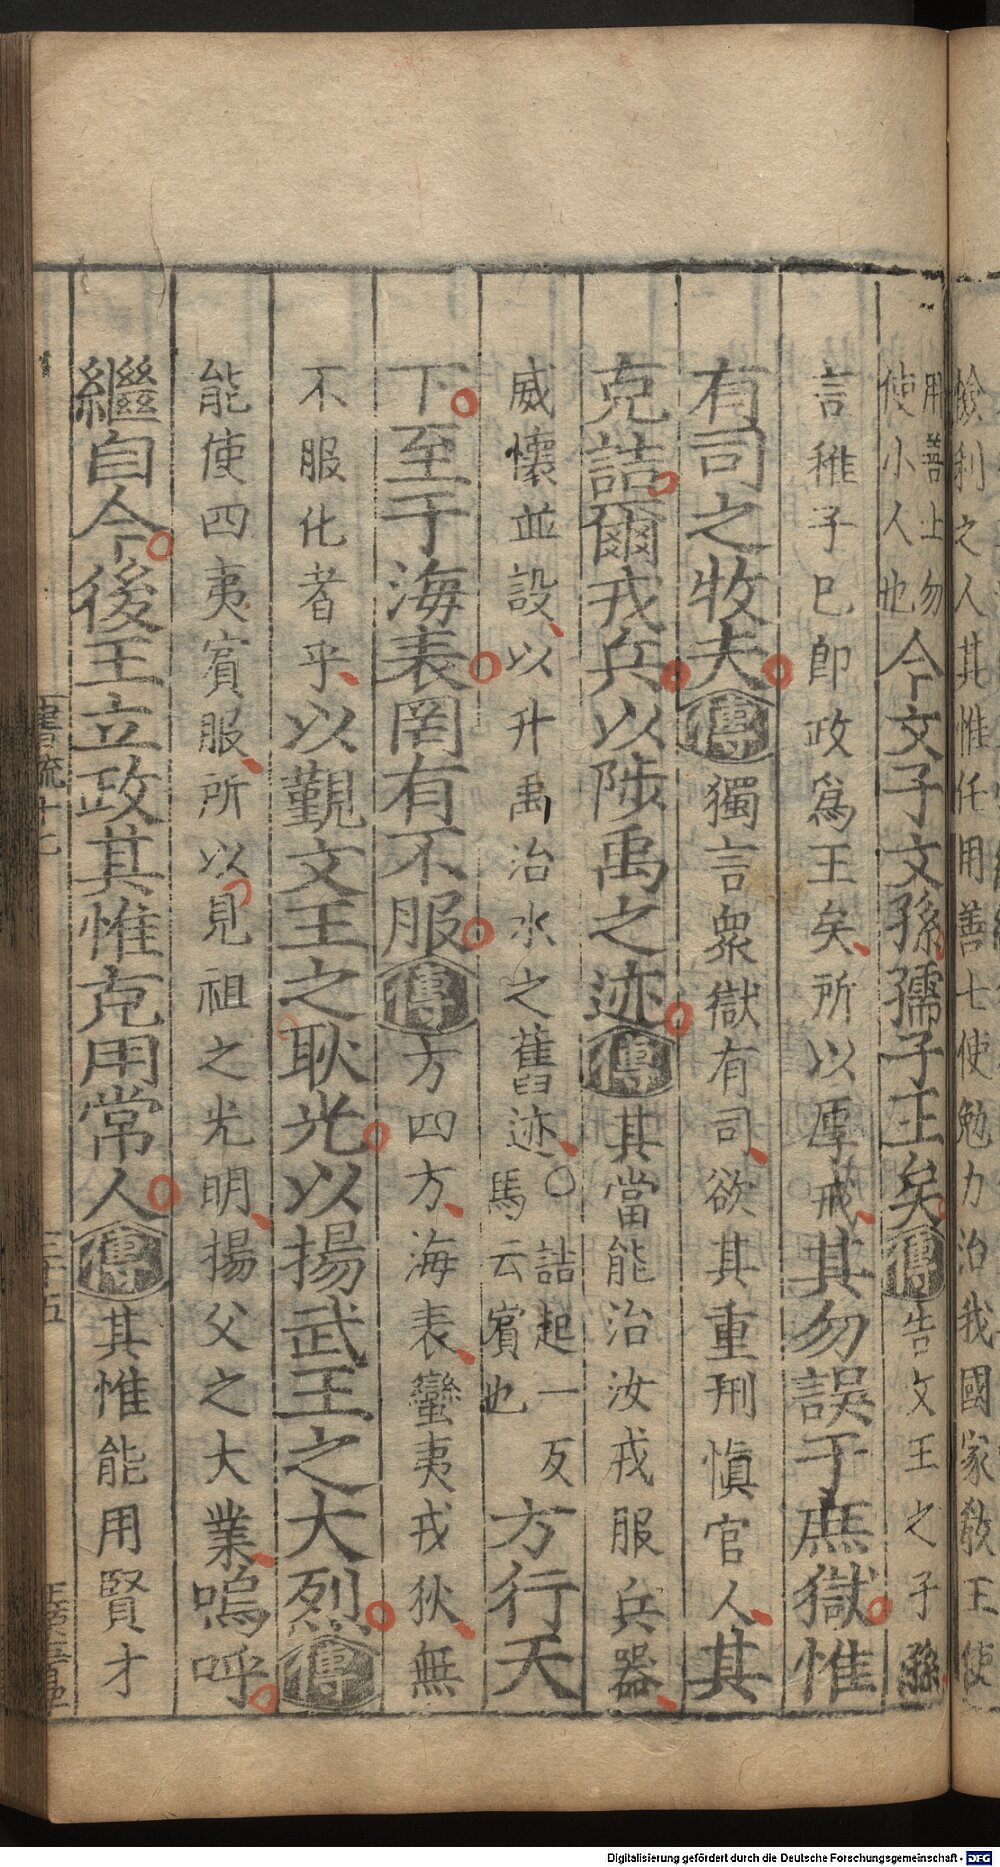 憸利之人其惟任用善士使勉力治我國家敎王使
用善士勿
使小人也
今文子文孫孺子王矣傳告文王之子孫
言稚子已卽政爲王矣所以厚戒其勿誤于庶獄惟
有司之牧夫傳獨言衆獄有司欲其重刑愼官人其
克詰爾戎兵以陟禹之迹傳其當能治汝戎服兵器
威懷並設以升禹治水之舊迹○
詰起一反
馬云賓也
方行天
下至于海表罔有不服傳方四方海表蠻夷戎狄無
不服化者乎以觀文王之耿光以揚武王之大烈傳
能使四夷賓服所以見祖之光明揚父之大業嗚呼
繼自今後王立政其惟克用常人傳其惟能用賢才
書疏十七
三十五
Digitalisierung gefördert durch die Deutsche Forschungsgemeinschaft - DFG